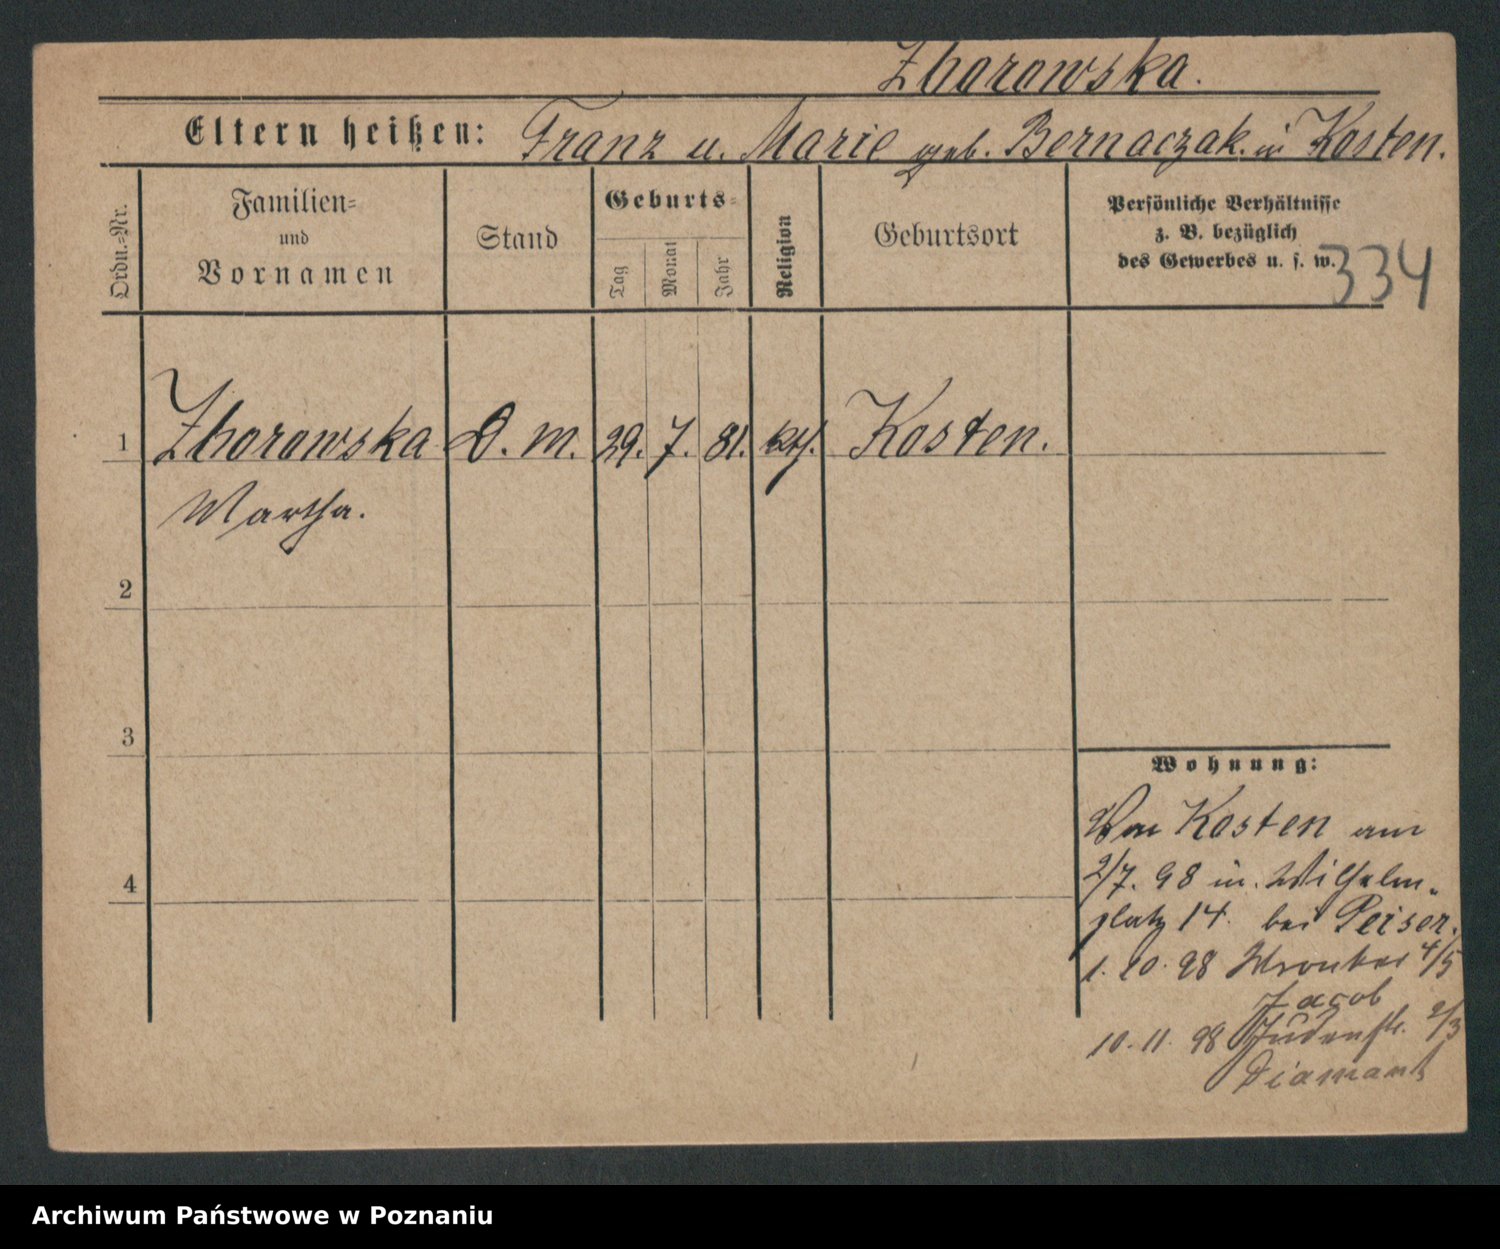 Zborowska.
Eltern heißen: Franz u. Marie geb. Bernaczak. in Kosten.
Ordn.-Nr.
Familien-
und
Vornamen
Stand
Geburts-
Tag
Monat
Jahr
Religion
Geburtsort
Persönliche Verhältnisse
z. B. bezüglich
des Gewerbes u. s. w.
334
1 Zborowska D. m. 29. 7. 81. kth. Kosten.
Martha.
2
3
4
Wohnung:
Von Kosten am
2/7. 98 in. Wilhelm-
platz 14. bei Peiser.
1. 10. 98 4/5
Jacob
10. 11. 98 Judenstr. 2/3
Diamant
Archiwum Państwowe w Poznaniu